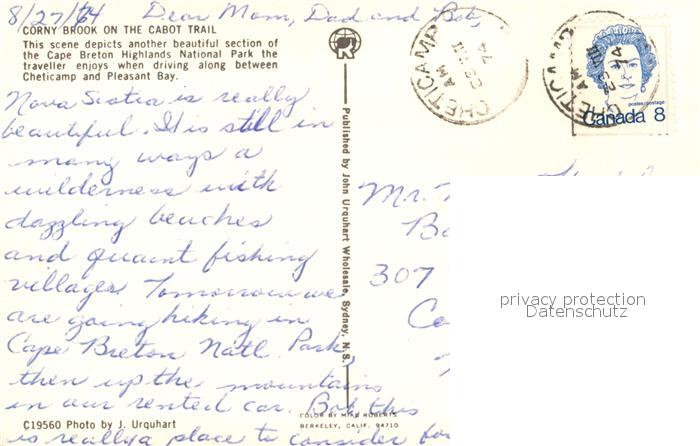 8/27/74 Dear Mom, Dad and Bob,
CORNY BROOK ON THE CABOT TRAIL
This scene depicts another beautiful section of
the Cape Breton Highlands National Park the
traveller enjoys when driving along between
Cheticamp and Pleasant Bay.
Nova Scotia is really
beautiful. It is still in
many ways a
wilderness with
dazzling beaches
and quaint fishing
villages. Tomorrow we
are going hiking in
Cape Breton Natl. Park,
then up the mountains
in our rented car. Bob this
is really a place to consider for
C19560 Photo by J. Urquhart
Published by John Urquhart Wholesale, Sydney, N.S.
COLOR BY MIKE ROBERTS
BERKELEY, CALIF. 94710
CHETICAMP
AM
74
CHETICAMP
AM
74
postes/postage
Canada 8
Mr.
307
privacy protection
Datenschutz